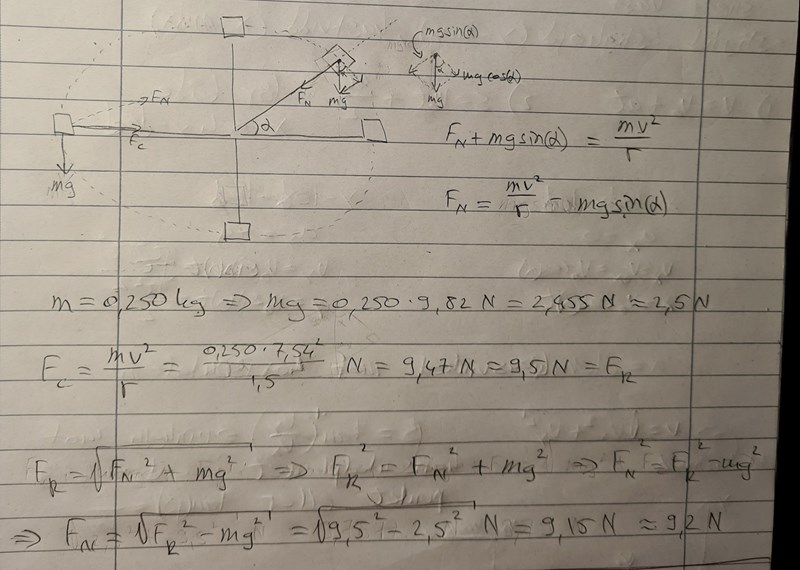 mgsin(α)
F_N
F_N
α
mg
mg cos(α)
mg
α
F_c
mg
F_N + mgsin(α) = mv²/r
F_N = mv²/r - mgsin(α)
m = 0,250 kg ⇒ mg = 0,250 · 9,82 N = 2,455 N ≈ 2,5 N
F_c = mv²/r = 0,250 · 7,54²/1,5 N = 9,47 N ≈ 9,5 N = F_R
F_R = √(F_N² + mg²) ⇒ F_R² = F_N² + mg² ⇒ F_N² = F_R² - mg²
⇒ F_N = √(F_R² - mg²) = √(9,5² - 2,5²) N = 9,15 N ≈ 9,2 N